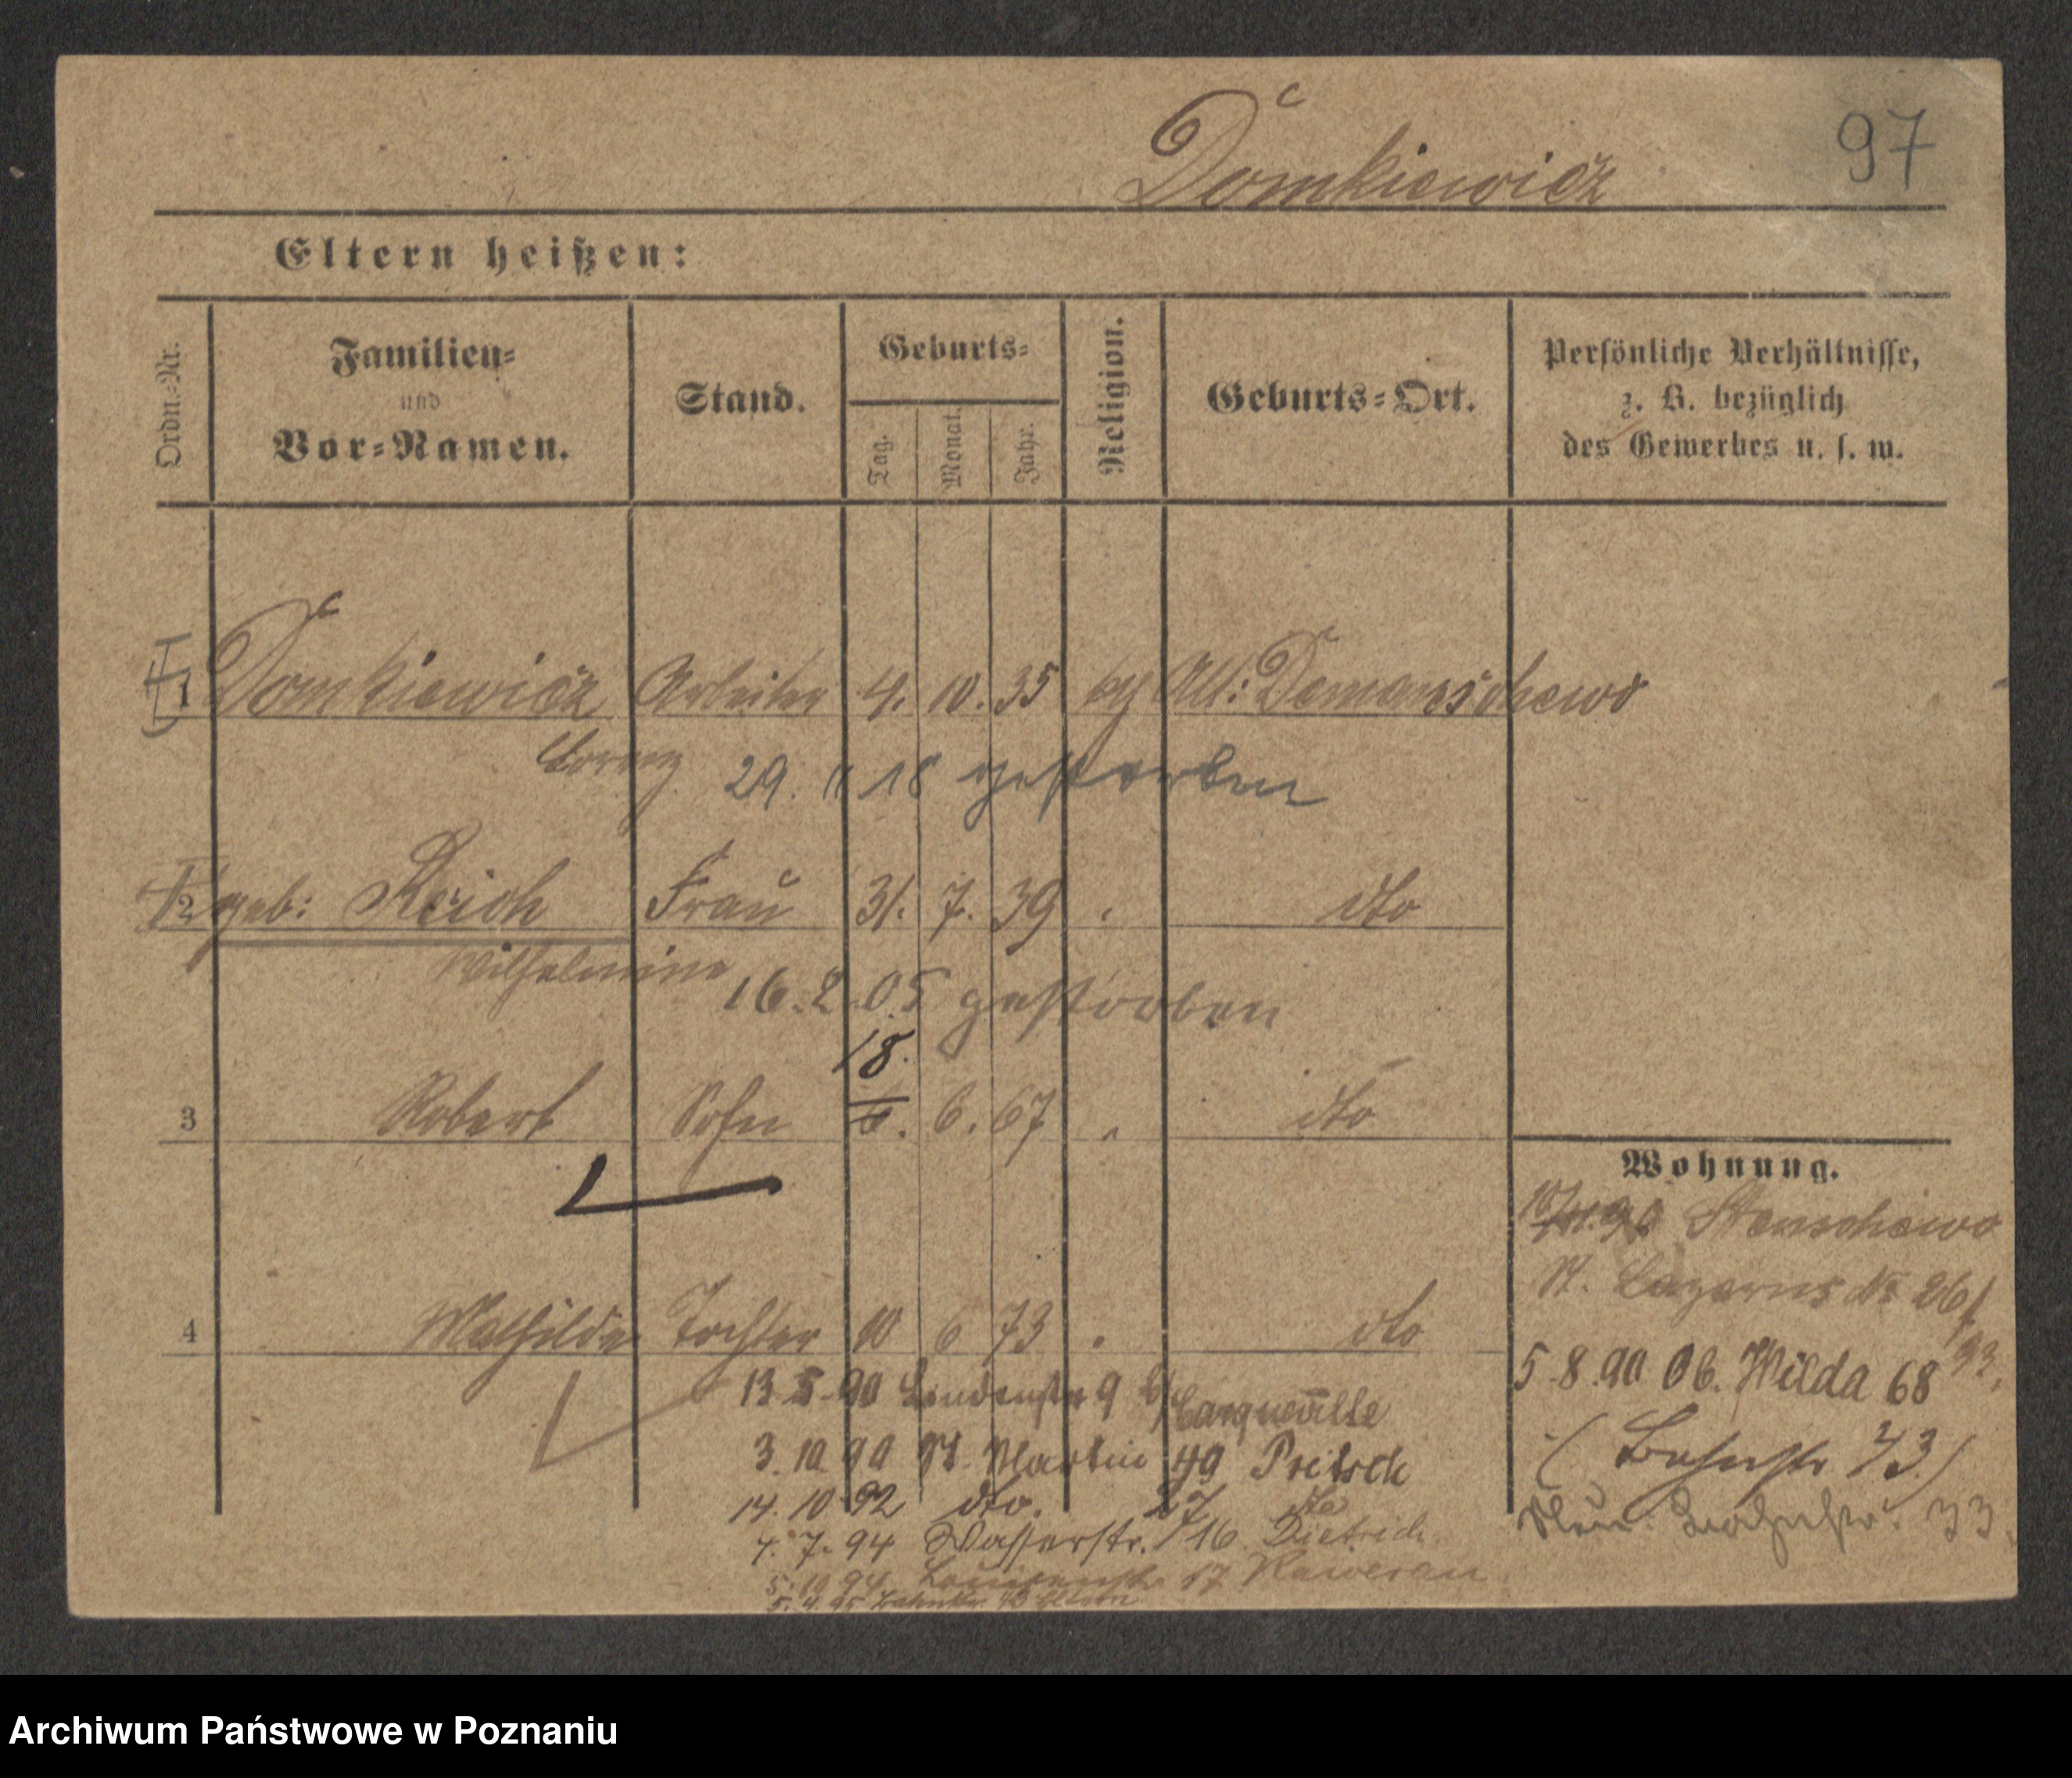 97
Domkiewicz
Eltern heißen:
Ordn.-Nr.
Familien-
und
Vor-Namen.
Stand.
Geburts-
Tag.
Monat.
Jahr.
Religion.
Geburts-Ort.
Persönliche Verhältnisse,
z. B. bezüglich
des Gewerbes u. s. w.
1 Domkiewicz Arbeiter 4. 10. 35 Alt: Domanschewo
Lorenz 29. 11 18 gestorben
2 geb: Reich Frau 31. 7. 39 dto
Wilhelmine 16. 2. 05 gestorben
18.
3 Robert Sohn 6. 67 dto
4 Mathilde Tochter 10 6 73 dto
13 5 90 Lindenstr 9
3. 10 90 St. Martin 49 Pritsch
14. 10 92 dto. 27 dto
4. 7. 94 Wasserstr. 16 Dietrich
5. 10 94 Louisenstr. 17 Kawerau
Wohnung.
Stenschewo
St. Lazarus No 26
5. 8. 90 Ob. Wilda 68
( Bahnstr. 73)
33
Archiwum Państwowe w Poznaniu